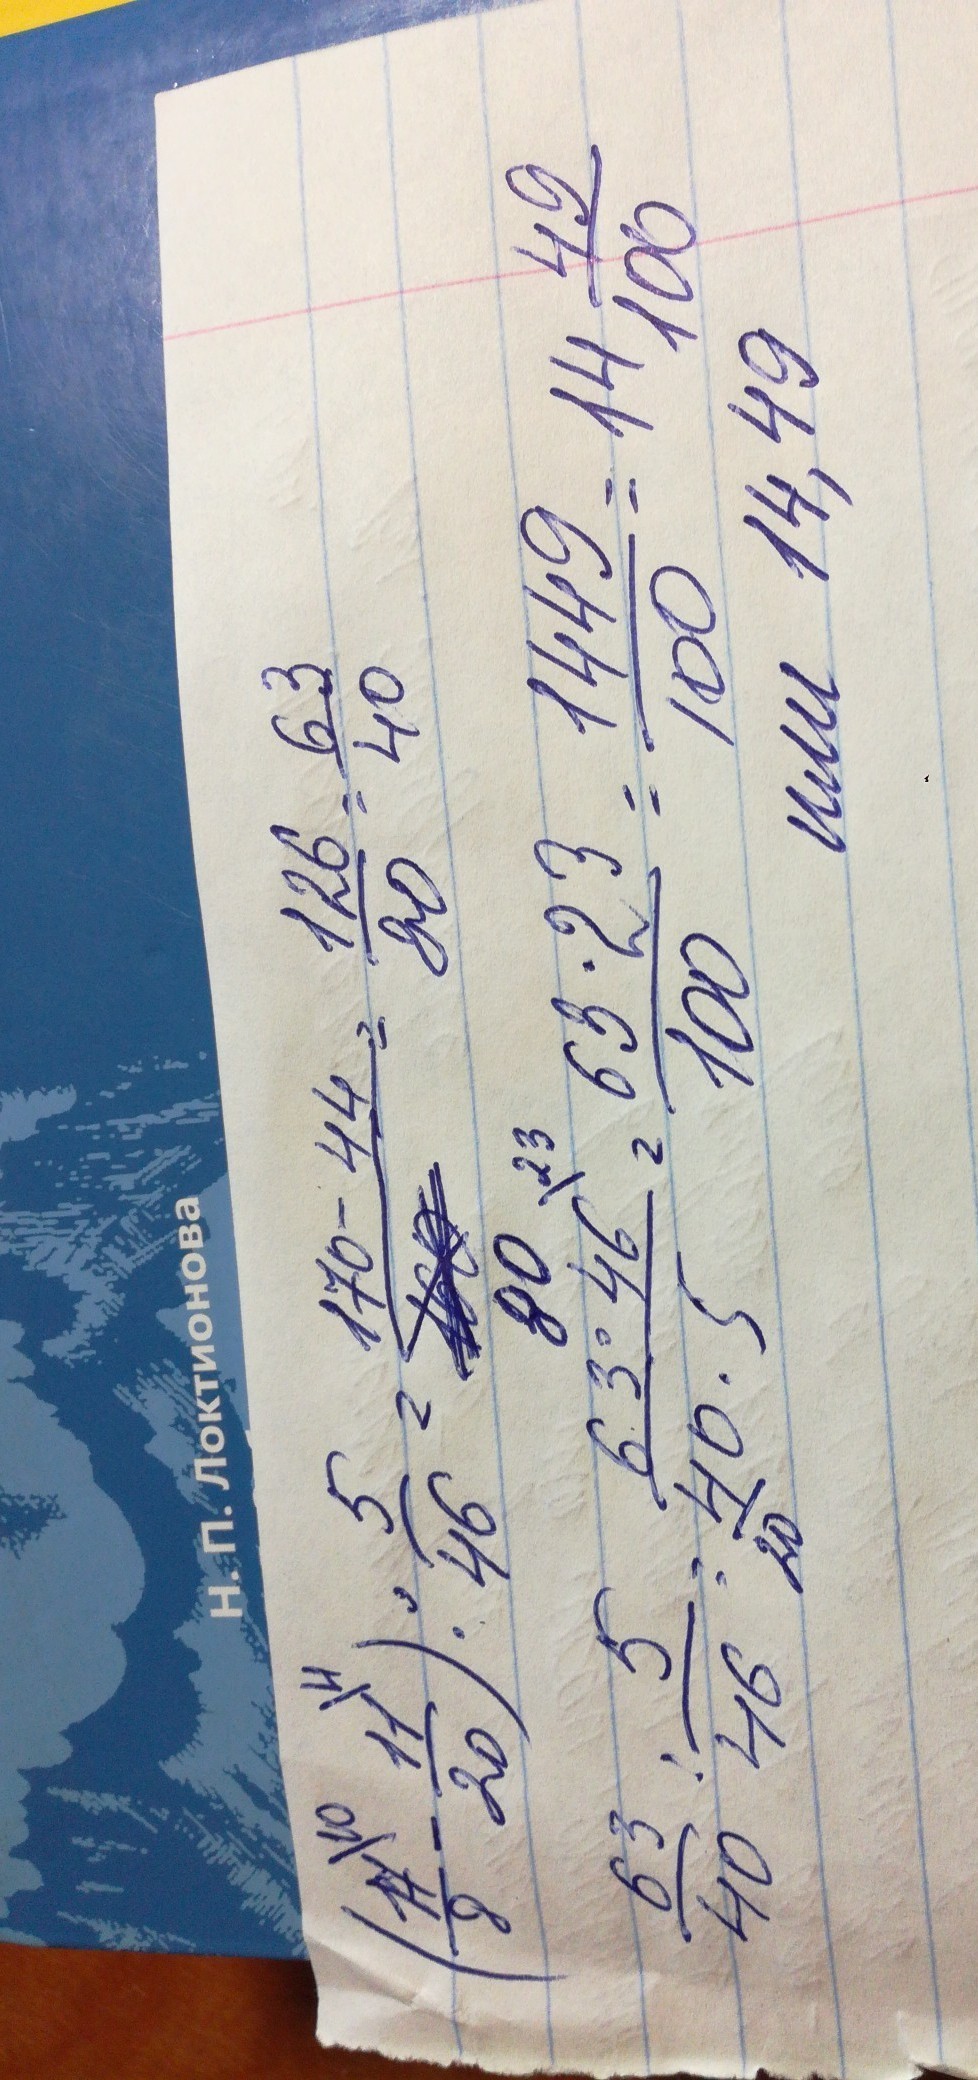 Н. П. Локтионова
(17/8 \10 - 11/20 \4) : 5/46 = (170 - 44)/80 = 126/80 = 63/40
63/40 : 5/46 = (63 · 46 \23)/(40 · 5) = (63 · 23)/100 = 1449/100 = 14 49/100
20
или 14,49